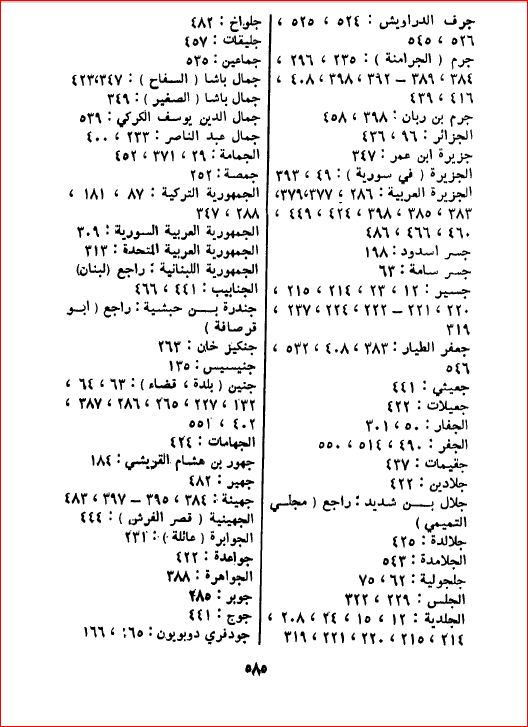 جرف الدراويش : ٥٢٤ ، ٥٢٥ ،
٥٢٦ ، ٥٤٥
جرم ( الجرامنة ) : ٢٣٥ ، ٢٩٦ ،
٣٨٤ ، ٣٨٩ – ٣٩٢ ، ٣٩٨ ، ٤٠٨ ،
٤١٦ ، ٤٣٩
جرم بن ربان : ٣٩٨ ، ٤٥٨
الجزائر : ٩٦ ، ٤٣٦
جزيرة ابن عمر : ٣٤٧
الجزيرة ( في سورية ) : ٤٩ ، ٣٩٣
الجزيرة العربية : ٢٨٦ ، ٣٧٧،٣٧٩،
٣٨٣ ، ٣٨٥ ، ٣٩٨ ، ٤٢٤ ، ٤٤٩ ،
٤٦٠ ، ٤٦٦ ، ٤٨٦
جسر اسدود : ١٩٨
جسر سامة : ٦٣
جسير : ١٢ ، ٢٣ ، ٢١٤ ، ٢١٥ ،
٢٢٠ ، ٢٢١ – ٢٢٢ ، ٢٢٤ ، ٢٣٧ ،
٣١٩
جعفر الطيار : ٣٨٣ ، ٤٠٨ ، ٥٣٢ ،
٥٤٦
جعيثي : ٤٤١
جعيلات : ٤٢٢
الجفار : ٥٠ ، ٣٠١
الجفر : ٤٩٠ ، ٥١٤ ، ٥٥٠
جقيمات : ٤٣٧
جلادين : ٤٢٢
جلال بـــن شديد : راجع ( مجلـي
التميمي )
جلالدة : ٤٢٥
الجلامدة : ٥٤٣
جلجولية : ٦٢ ، ٧٥
الجلس : ٢٢٩ ، ٣٢٢
الجلدية : ١٢ ، ١٥ ، ٢٤ ، ٢٠٨ ،
٢١٤ ، ٢١٥ ، ٢٢٠ ، ٢٢١ ، ٣١٩
جلواخ : ٤٨٢
جليقات : ٤٥٧
جماعين : ٥٣٥
جمال باشا ( السفاح ) : ٤٢٣،٣٤٧
جمال باشا ( الصغير ) : ٣٤٩
جمال الدين يوسف الكركي : ٥٣٩
جمال عبد الناصر : ٢٣٣ ، ٤٠٠
الجمامة : ٢٩ ، ٣٧١ ، ٤٥٢
جمصة : ٢٥٢
الجمهورية التركية : ٨٧ ، ١٨١ ،
٢٨٨ ، ٣٤٧
الجمهورية العربية السورية : ٣٠٩
الجمهورية العربية المتحدة : ٣١٣
الجمهورية اللبنانية : راجع (لبنان)
الجنابيب : ٤٤١ ، ٤٦٦
جندرة بـــن حبشية : راجع ( ابـو
قرصافة )
جنكيز خان : ٢٦٣
جنيسيس : ١٣٥
جنين ( بلدة ، قضاء ) : ٦٣ ، ٦٤ ،
١٣٢ ، ٢٢٧ ، ٢٦٥ ، ٢٨٦ ، ٣٨٧ ،
٤٠٢ ، ٥٥١
الجهامات : ٤٢٤
جهور بن هشام القريشي : ١٨٤
جهير : ٤٨٢
جهينة : ٣٨٤ ، ٣٩٥ – ٣٩٧ ، ٤٨٣
الجهينية ( قصر الفرش ) : ٤٤٤
الجوابرة ( عائلة ) : ٢٣١
جواعدة : ٤٢٢
الجواهرة : ٣٨٨
جوبر : ٤٨٥
جوج : ٤٤١
جودفري دوبويون : ٦٥ ، ١٦٦
٥٨٥